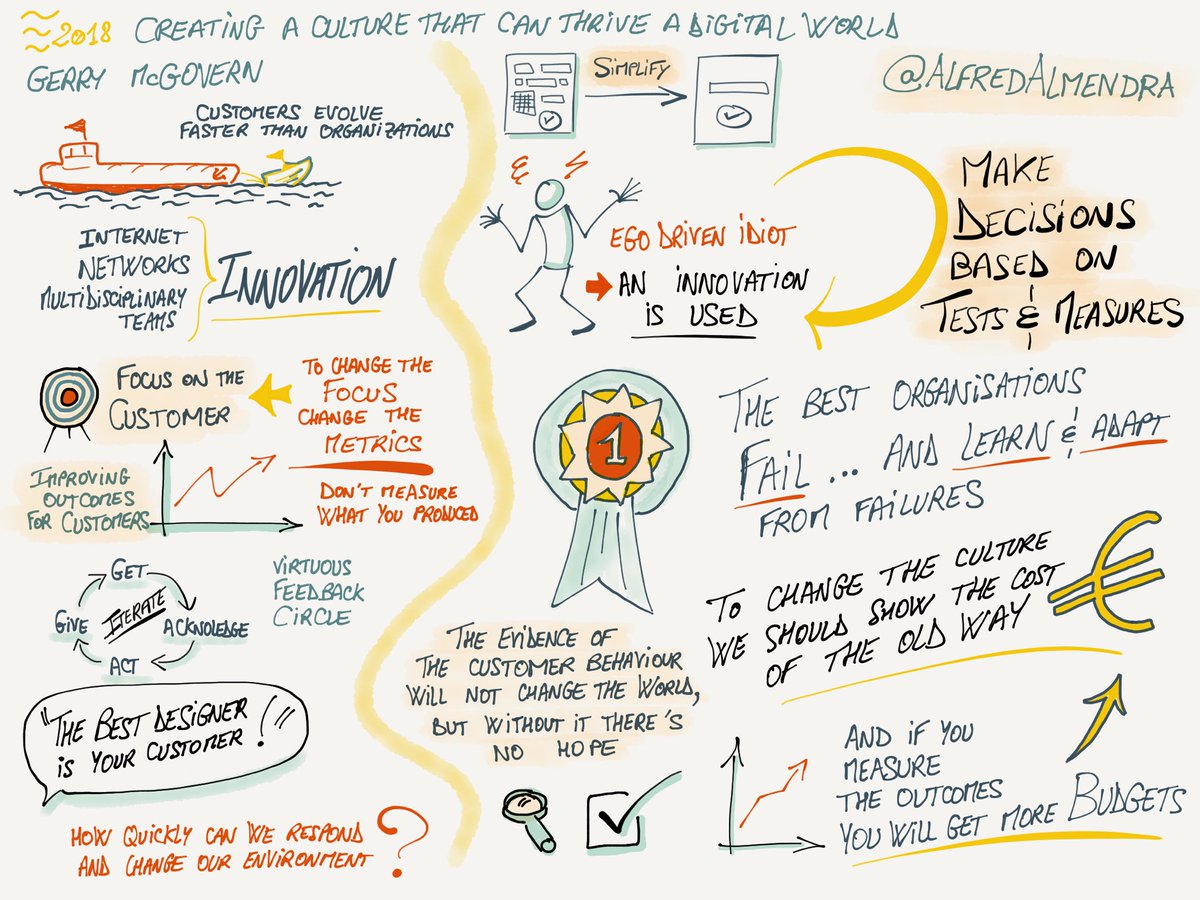 2018 CREATING A CULTURE THAT CAN THRIVE A DIGITAL WORLD
GERRY McGOVERN
@ALFREDALMENDRA
CUSTOMERS EVOLVE
FASTER THAN ORGANIZATIONS
INTERNET
NETWORKS
MULTIDISCIPLINARY
TEAMS
INNOVATION
FOCUS ON THE
CUSTOMER
TO CHANGE THE
FOCUS
CHANGE THE
METRICS
IMPROVING
OUTCOMES
FOR CUSTOMERS
DON'T MEASURE
WHAT YOU PRODUCED
GET
ACKNOLEDGE
ACT
GIVE
ITERATE
VIRTUOUS
FEEDBACK
CIRCLE
"THE BEST DESIGNER
IS YOUR CUSTOMER!"
HOW QUICKLY CAN WE RESPOND
AND CHANGE OUR ENVIRONMENT ?
SIMPLIFY
EGO DRIVEN IDIOT
AN INNOVATION
IS USED
MAKE
DECISIONS
BASED ON
TESTS & MEASURES
1
THE BEST ORGANISATIONS
FAIL... AND LEARN & ADAPT
FROM FAILURES
TO CHANGE THE CULTURE
WE SHOULD SHOW THE COST
OF THE OLD WAY
€
THE EVIDENCE OF
THE CUSTOMER BEHAVIOUR
WILL NOT CHANGE THE WORLD,
BUT WITHOUT IT THERE'S
NO HOPE
AND IF YOU
MEASURE
THE OUTCOMES
YOU WILL GET MORE BUDGETS